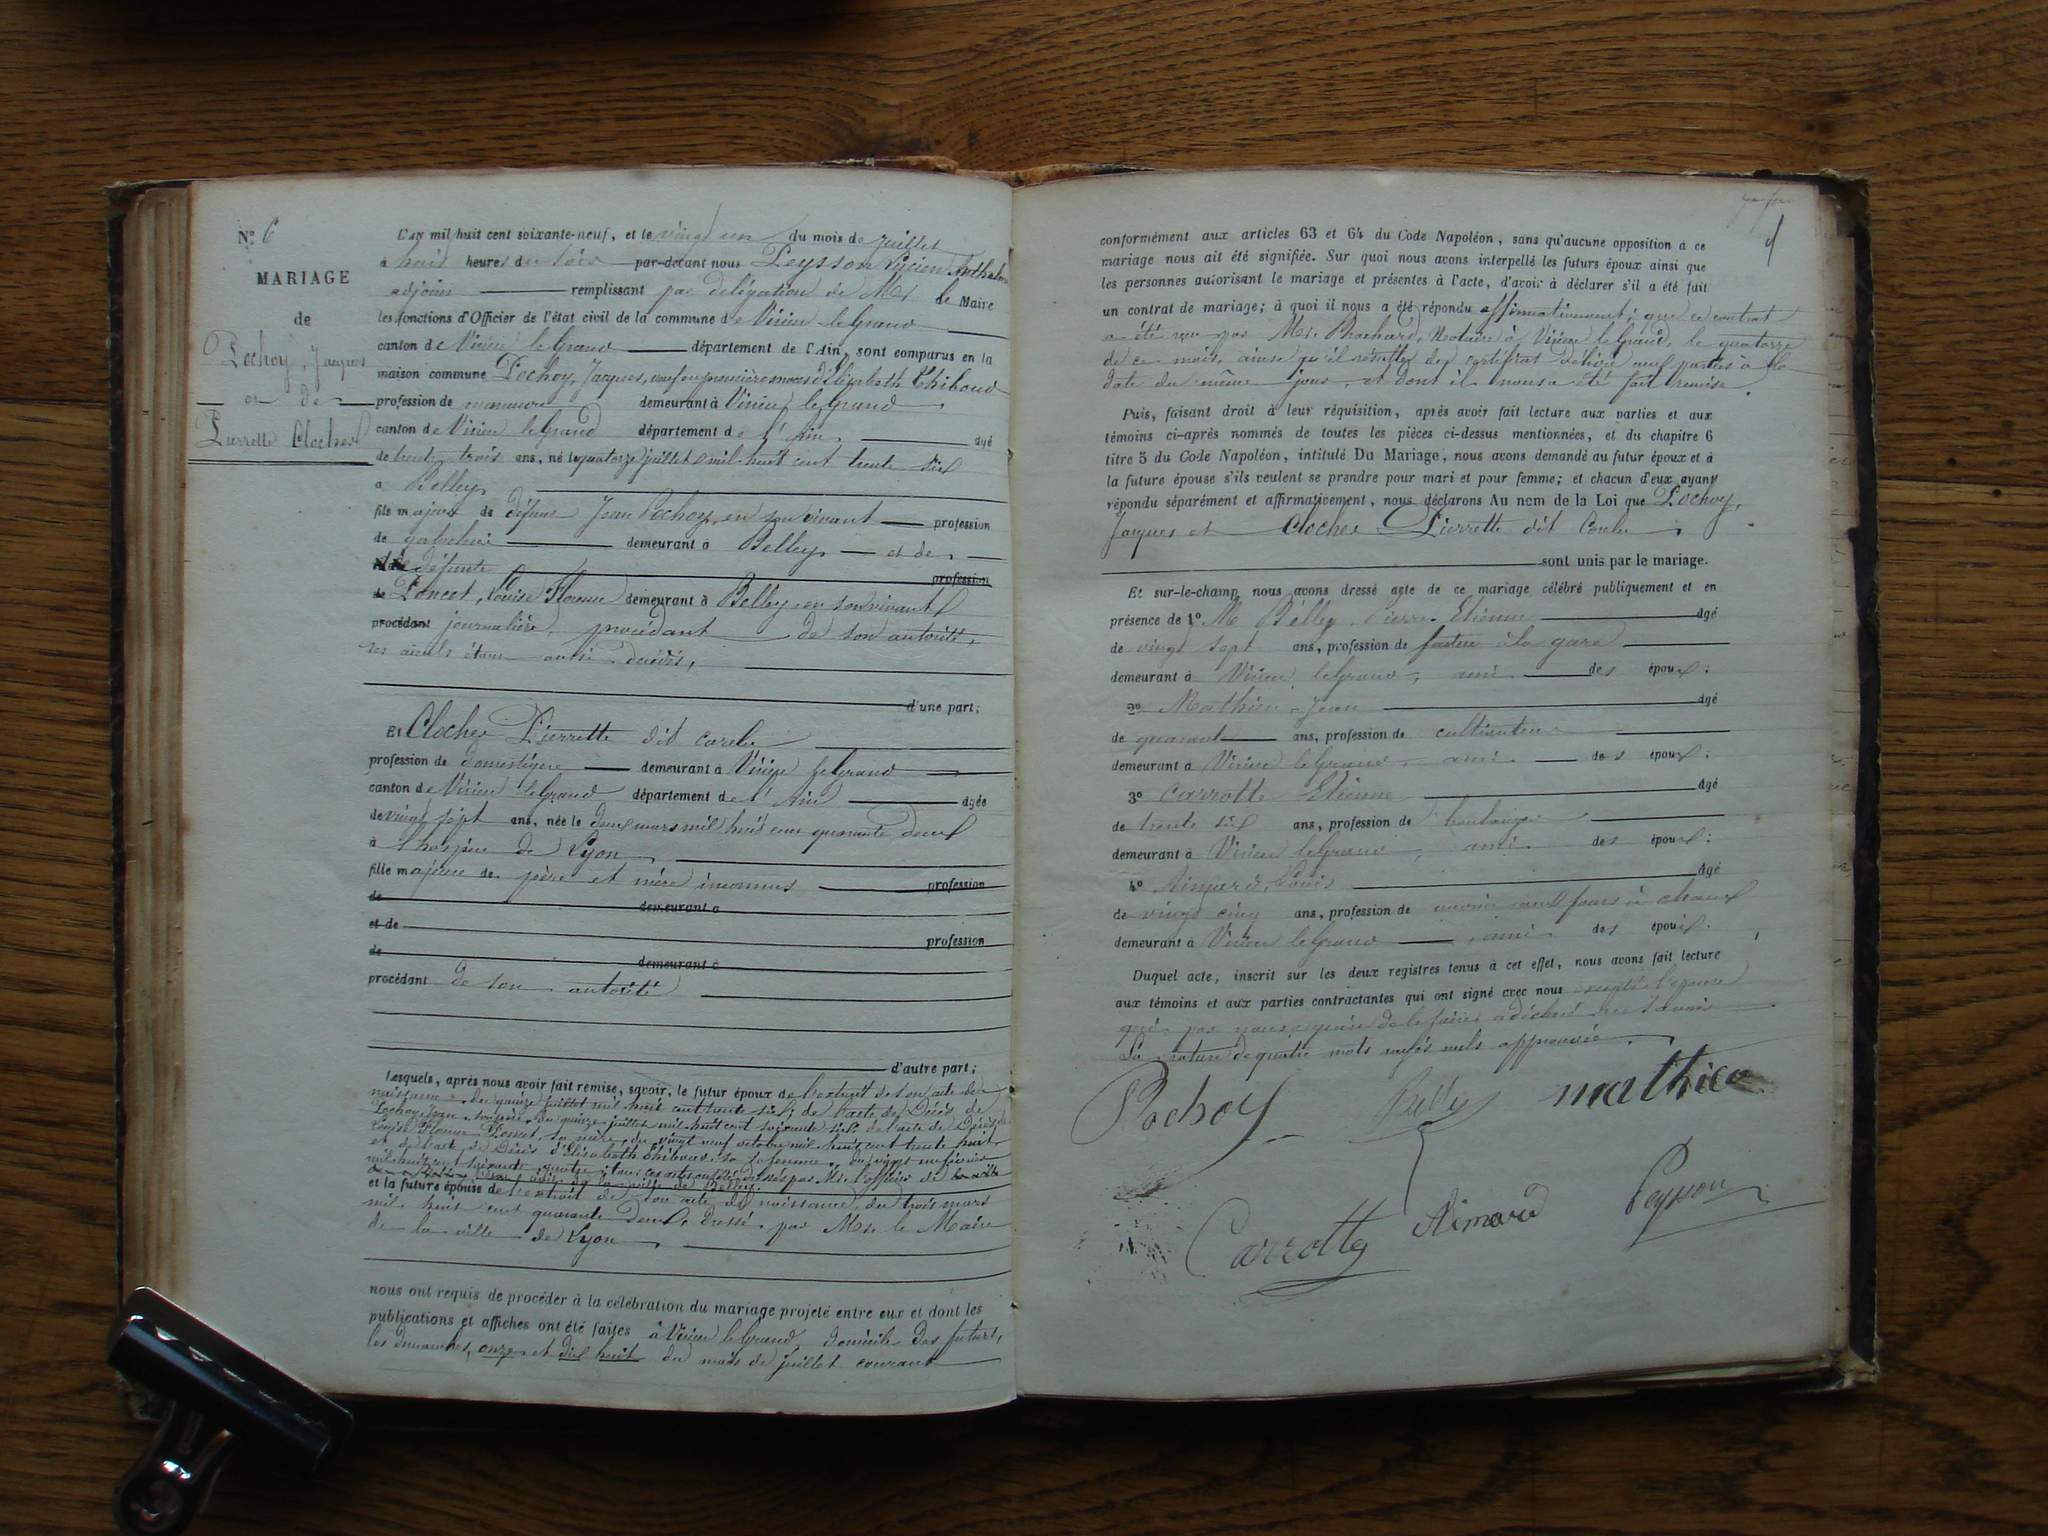 N° 6
MARIAGE
de
Pochoy, Jacques
et de
Pierrette Clocher
L'AN mil huit cent soixante-neuf, et le vingt un du mois de juillet
à trois heures du soir par-devant nous Peysson Lucien Anthelme
adjoint remplissant par délégation de Mr le Maire
les fonctions d'Officier de l'état civil de la commune de Virieu le Grand
canton de Virieu le Grand département de l'Ain, sont comparus en la
maison commune Pochoy, Jacques, veuf en première noces d'Elizabeth Thiboud
profession de manœuvre demeurant à Virieu le Grand
canton de Virieu le Grand département de l'Ain, âgé
de trente trois ans, né le quatorze juillet mil huit cent trente six
à Belley
fils majeur de défunt Jean Pochoy, en son vivant profession
de galochier demeurant à Belley et de
défunte profession
de Poncet, Louise Florence demeurant à Belley en son vivant
procédant journalière, procédant de son autorité,
ses aïeuls étant aussi décédés,
d'une part;
Et Clocher Pierrette dit
profession de domestique demeurant à Virieu le Grand
canton de Virieu le Grand département de l'Ain âgée
de vingt sept ans, née le deux mars mil huit cent quarante deux
à l'hospice de Lyon
fille majeure de père et mère inconnus profession
de demeurant à
et de profession
de demeurant à
procédant de son autorité
d'autre part;
Lesquels, après nous avoir fait remise, savoir, le futur époux de l'extrait de son acte de
naissance du quinze juillet mil huit cent trente six; de l'acte de décès de
Pochoy Jean, son père, du quinze juillet mil huit cent soixante six, de l'acte de Décès de
Louise Florence Poncet, sa mère, du vingt neuf octobre mil huit cent trente huit,
et de l'acte de Décès d'Elisabeth Thiboud, sa femme, du vingt février
mil huit cent soixante quatre; tous ces actes ont été dressés par Mr l'officier de la ville
de la ville de Belley.
et la future épouse de l'extrait de son acte de naissance, du trois mars
mil huit cent quarante deux, dressé par Mr le Maire
de la ville de Lyon,
nous ont requis de procéder à la célébration du mariage projeté entre eux et dont les
publications et affiches ont été faites à Virieu le Grand, domicile des futurs,
les dimanches, onze et dix huit du mois de juillet courant
conformément aux articles 63 et 64 du Code Napoléon, sans qu'aucune opposition à ce
mariage nous ait été signifiée. Sur quoi nous avons interpellé les futurs époux ainsi que
les personnes autorisant le mariage et présentes à l'acte, d'avoir à déclarer s'il a été fait
un contrat de mariage; à quoi il nous a été répondu affirmativement; que ce contrat
a été reçu par Mr Brachard, Notaire à Virieu le Grand, le quatorze
de ce mois, ainsi qu'il résulte du certificat délivré aux parties à la
date du même jour, et dont il nous a été fait remise
Puis, faisant droit à leur réquisition, après avoir fait lecture aux parties et aux
témoins ci-après nommés de toutes les pièces ci-dessus mentionnées, et du chapitre 6
titre 5 du Code Napoléon, intitulé Du Mariage, nous avons demandé au futur époux et à
la future épouse s'ils veulent se prendre pour mari et pour femme; et chacun d'eux ayant
répondu séparément et affirmativement, nous déclarons Au nom de la Loi que Pochoy,
Jacques et Clocher Pierrette dit
sont unis par le mariage.
Et sur-le-champ nous avons dressé acte de ce mariage célébré publiquement et en
présence de 1° M Belley Pierre Etienne âgé
de vingt sept ans, profession de facteur à la gare
demeurant à Virieu le Grand, ami des époux;
2° Mathieu Jean âgé
de quarante ans, profession de cultivateur
demeurant à Virieu le Grand, ami des époux;
3° Carrotte Etienne âgé
de trente six ans, profession de boulanger
demeurant à Virieu le Grand, ami des époux;
4° Aimard, Louis âgé
de vingt cinq ans, profession de ouvrier aux fours à chaux
demeurant à Virieu le Grand, ami des époux.
Duquel acte, inscrit sur les deux registres tenus à cet effet, nous avons fait lecture
aux témoins et aux parties contractantes qui ont signé avec nous excepté l'épouse
qui par nous requise de le faire a déclaré ne savoir
La rature de quatre mots rayés nuls approuvée.
Pochoy Belley mathieu
Carrotte Aimard Peysson